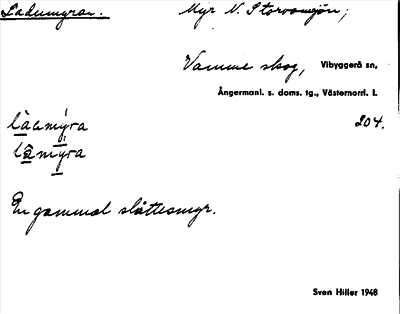 Ladumyran. Myr N. Storvamsjön;
Vamme skog, Vibyggerå sn,
Ångermanl. s. doms. tg., Västernorrl. l.
204.
En gammal slåttesmyr.
Sven Hiller 1948